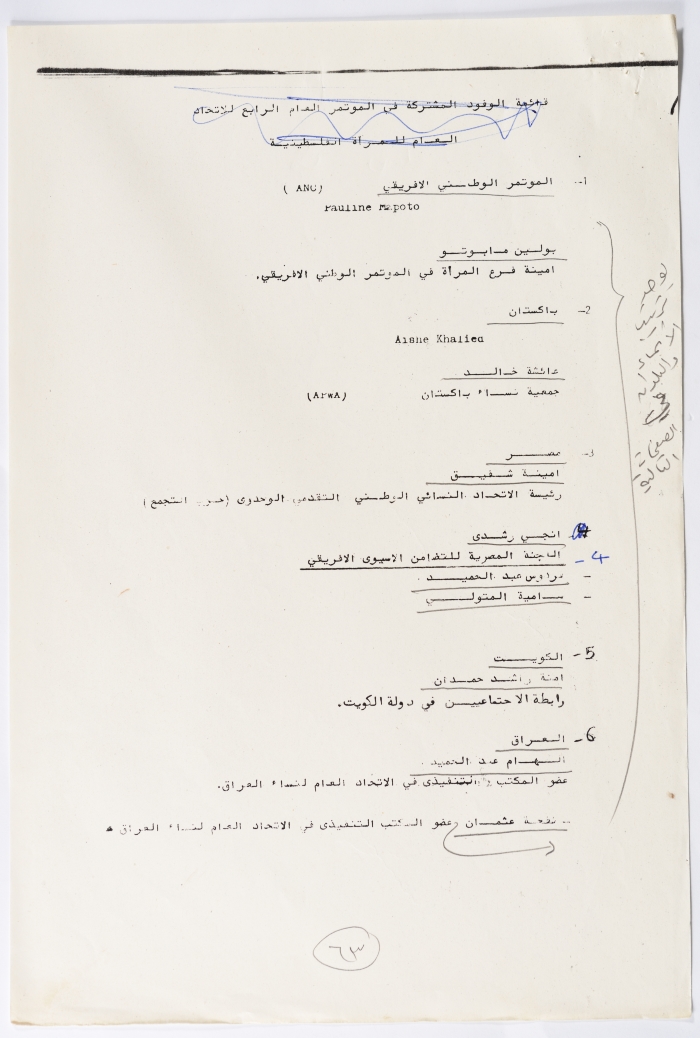 قائمة الوفود المشتركة في الموتمر العام الرابع للاتحاد
العام للمرأة الفلسطينية
1- الموتمر الوطني الافريقي (ANC)
Pauline Mapoto
بولين مابوتو
امينة فرع المرأة في الموتمر الوطني الافريقي.
2- باكستان
Aishe Khalied
عائشة خالد
جمعية نساء باكستان (APWA)
3- مصر
امينة شفيق
رئيسة الاتحاد النسائي الوطني التقدمي الوحدوى (حزب التجمع)
انجي رشدى
4- اللجنة المصرية للتضامن الاسيوى الافريقي
- عبد الحميد .
- سامية المتولي
5- الكويت
امنة راشد حمدان
رابطة الاجتماعيين في دولة الكويت.
6- العراق
الهام عبد الحميد .
عضو المكتب التنفيذى في الاتحاد العام لنساء العراق.
عثمان عضو المكتب التنفيذى في الاتحاد العام لنساء العراق
الصفحة
التالية
٦٣